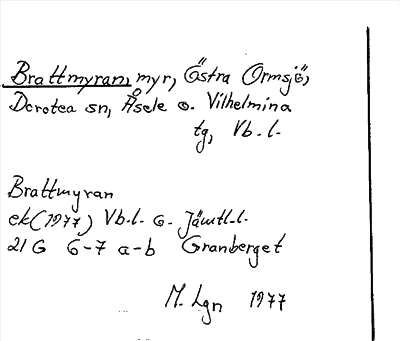 Brattmyran, myr, Östra Ormsjö,
Dorotea sn, Åsele o. Vilhelmina
tg, Vb.l.
Brattmyran
ek (1977) Vb.l. o. Jämtl.l.
21 G 6-7 a-b Granberget
M. Lgn 1977